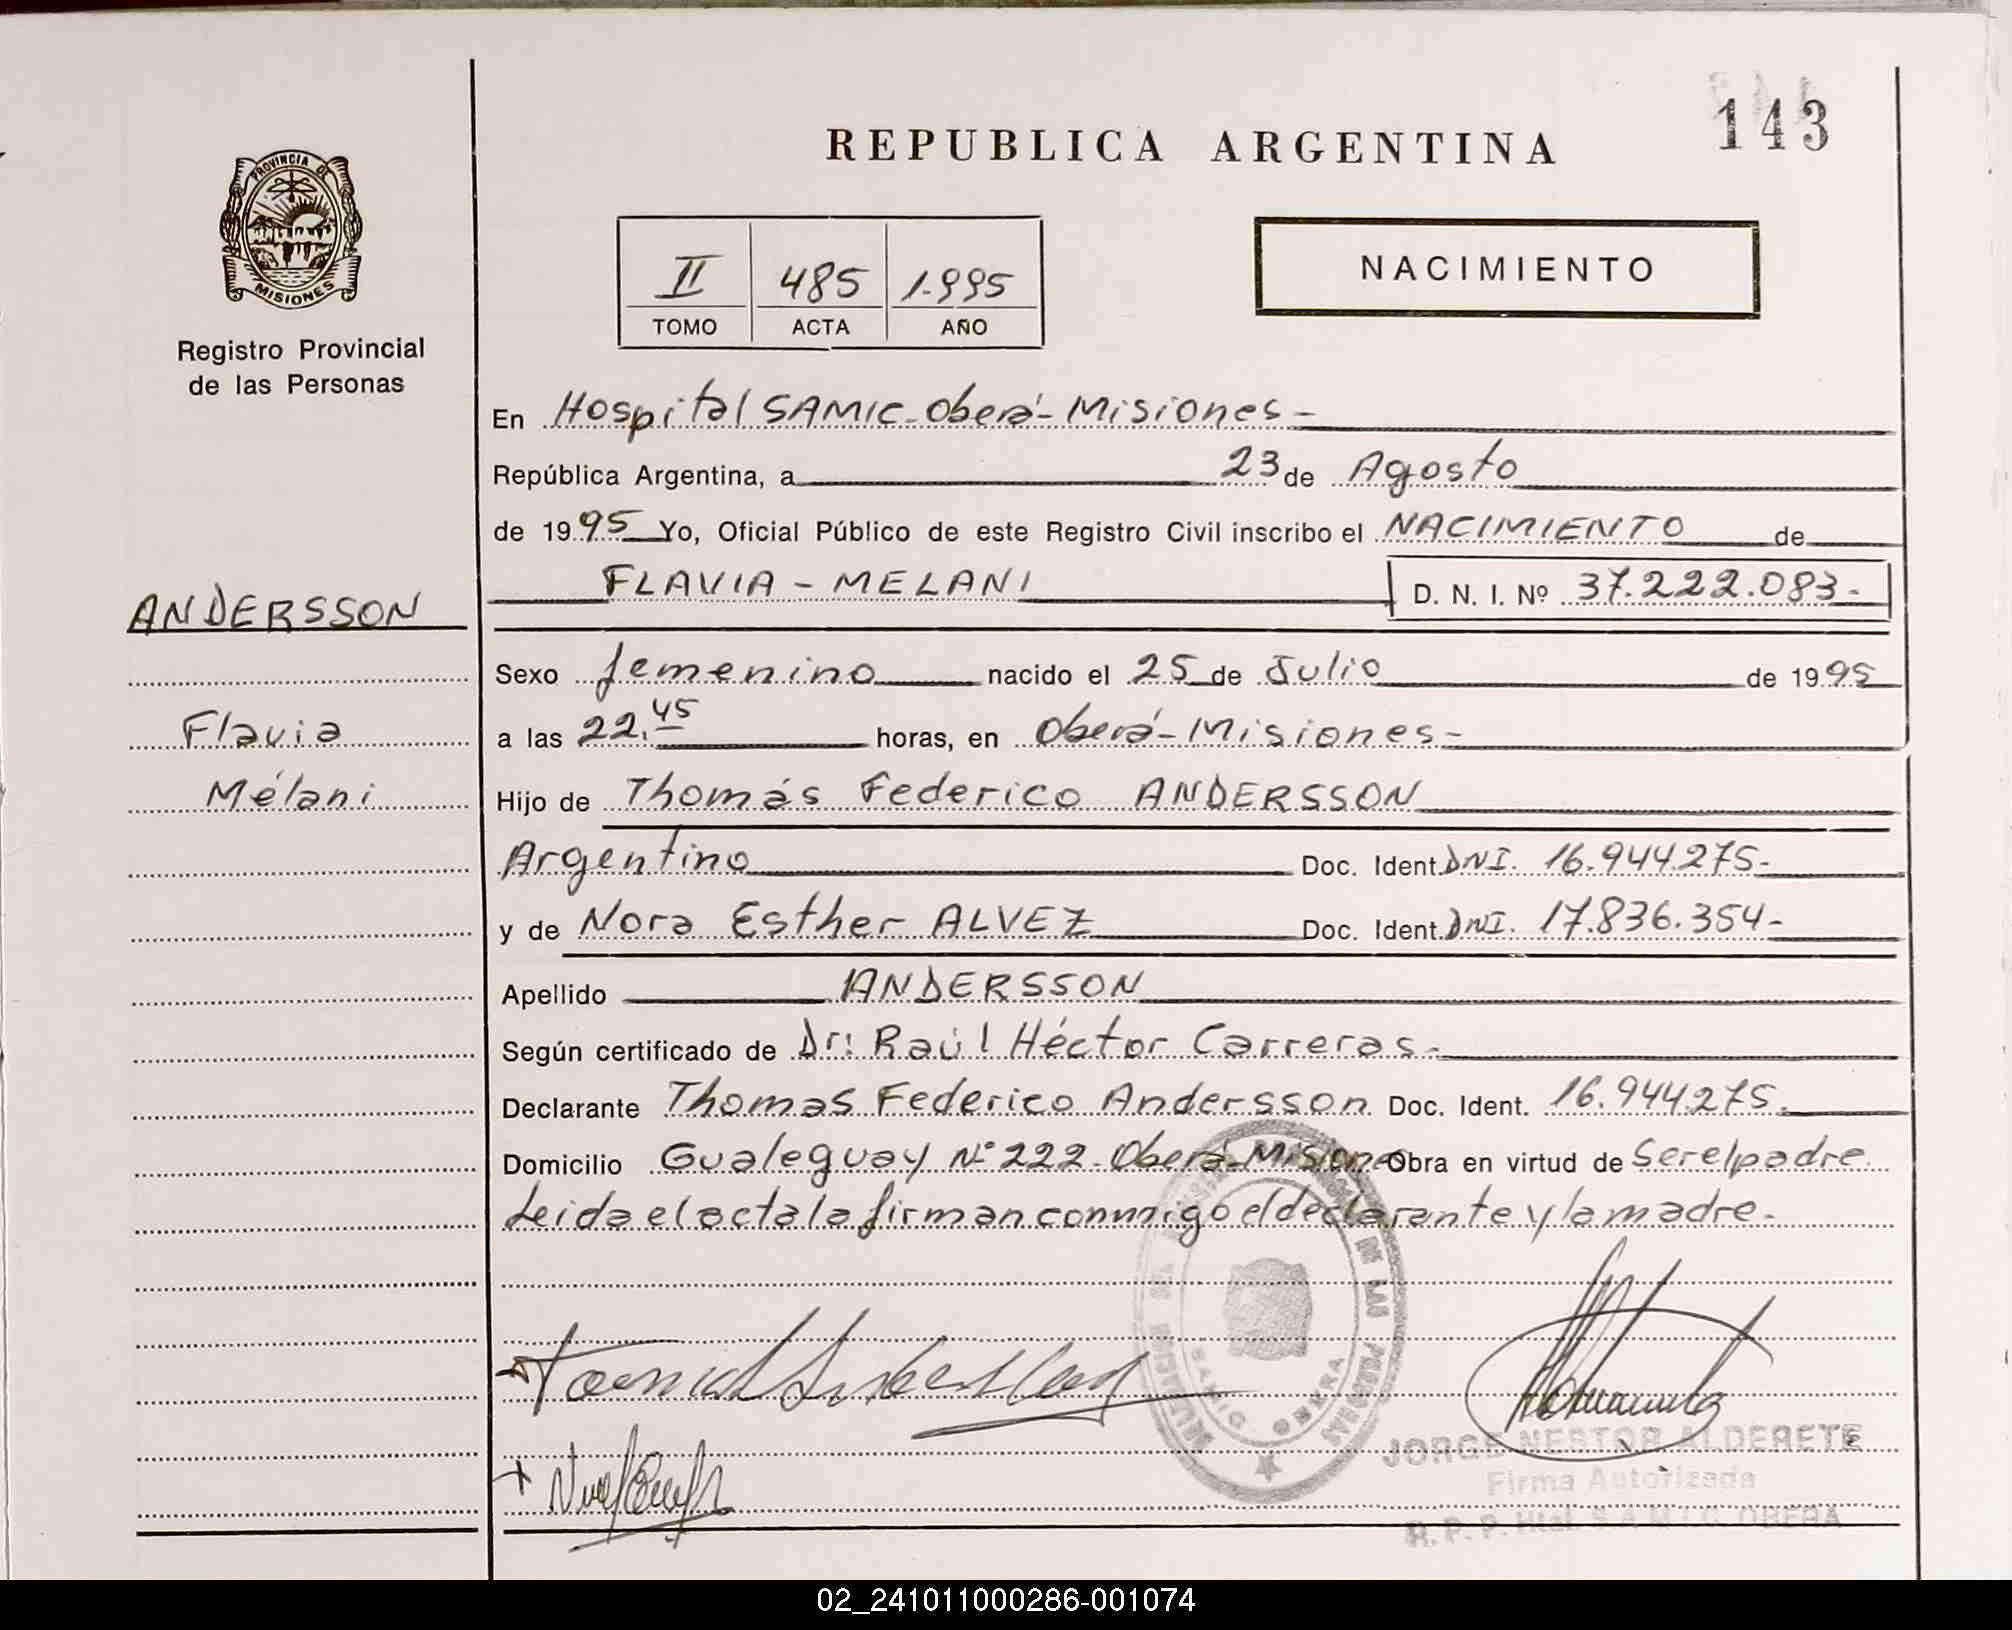 REPUBLICA ARGENTINA
143
PROVINCIA DE
MISIONES
Registro Provincial
de las Personas
II 485 1.995
TOMO ACTA AÑO
NACIMIENTO
En Hospital SAMIC - Oberá - Misiones -
República Argentina, a 23 de Agosto
de 1995 Yo, Oficial Público de este Registro Civil inscribo el NACIMIENTO de
FLAVIA - MELANI D. N. I. Nº 37.222.083.-
ANDERSSON
Sexo femenino nacido el 25 de Julio de 1995
Flavia
a las 22.45 horas, en Oberá - Misiones -
Mélani
Hijo de Thomás Federico ANDERSSON
Argentino Doc. Ident. DNI. 16.944.275.-
y de Nora Esther ALVEZ Doc. Ident. DNI. 17.836.354-
Apellido ANDERSSON
Según certificado de Dr: Raúl Héctor Carreras.-
Declarante Thomas Federico Andersson Doc. Ident. 16.944.275.
Domicilio Gualeguay Nº 222 - Oberá - Misiones Obra en virtud de Ser el padre
Leida el acta la firman conmigo el declarante y la madre.-
DE LAS PERSONAS
SAMIC OBERA
JORGE NESTOR ALDERETE
Firma Autorizada
R. P. P. Htal. S.A.M.I.C. OBERA
02_241011000286-001074